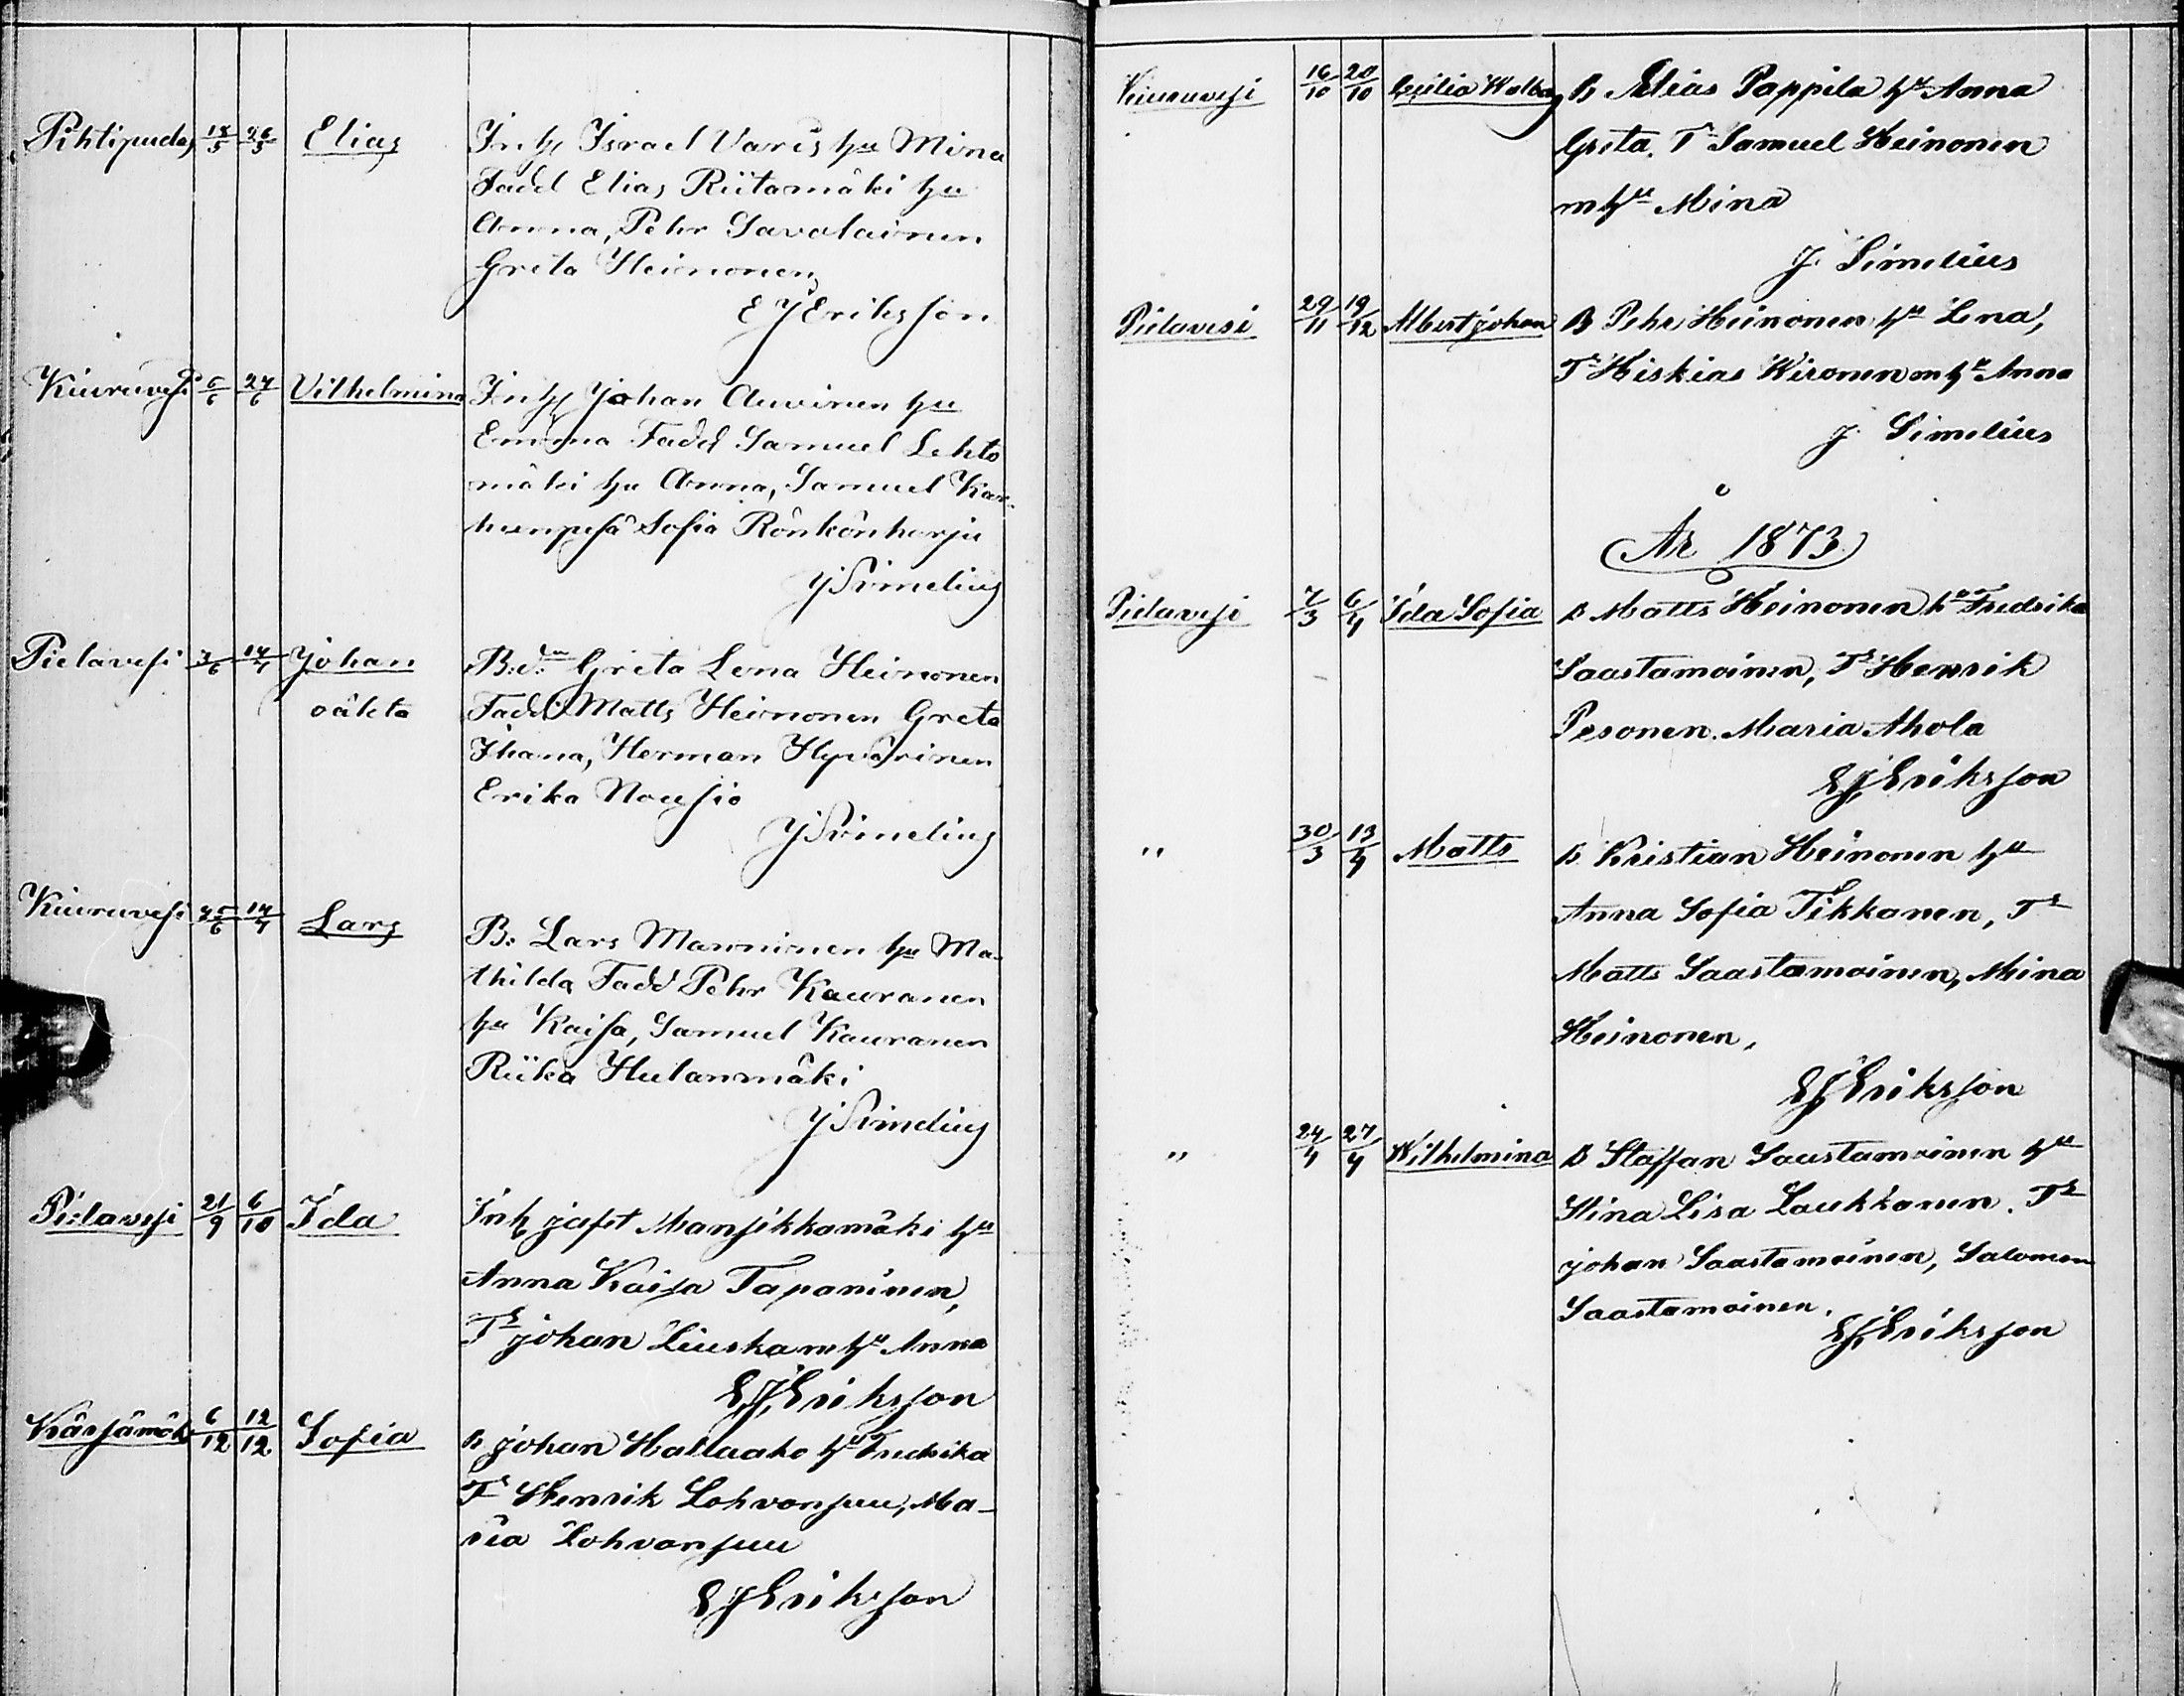 Pihtipudas 18/5 26/5 Elias Inhs Israel Varis hu Mina
Fadd Elias Riitamäki hu
Anna, Pehr Savolainen
Greta Heinonen
E J Eriksson
Kiuruvesi 6/6 24/6 Vilhelmina Inhs Johan Auvinen hu
Emma Fadd Samuel Lehto
mäki hu Anna, Samuel Kar-
hunpesä Sofia Rönkönharju
J Simelius
Pielavesi 3/6 14/7 Johan B:dr Greta Lena Heinonen
oäkta Fadd Matts Heinonen Greta
Ihana, Herman Hyvärinen
Erika Nousio
J Simelius
Kiuruvesi 25/6 14/7 Lars B: Lars Manninen hu Ma-
thilda Fadd Pehr Kauranen
hu Kaisa, Samuel Kauranen
Riika Hulanmäki
J Simelius
Pielavesi 21/9 6/10 Ida Inh Jafet Mansikkamäki hu
Anna Kaisa Tapaninen,
Tr Johan Liuska m hu Anna
E J Eriksson
Kärsämäk 6/12 12/12 Sofia B Johan Hallaaho hu Fredrika
Tr Henrik Lohvansuu, Ma-
ria Lohvansuu
E J Eriksson
Kiuruvesi 16/10 20/10 B Elias Pappila hu Anna
Greta. Tr Samuel Heinonen
m hu Mina
J. Simelius
Pielavesi 29/11 19/12 Albert Johan B Pehr Heinonen hu Lena,
Tr Hiskias Wironen m hu Anna
J. Simelius
År 1873
Pielavesi 7/3 6/4 Ida Sofia B Matts Heinonen hu Fredrika
Saastamoinen, Tr Henrik
Pesonen. Maria Ahola
E J Eriksson
" 30/3 13/4 Matts B Kristian Heinonen hu
Anna Sofia Tikkanen, Tr
Matts Saastamoinen, Mina
Heinonen,
E J Eriksson
" 24/4 27/4 Wilhelmina B Staffan Saastamoinen hu
Stina Lisa Laukkanen. Tr
Johan Saastamoinen, Salomon
Saastamoinen.
E J Eriksson